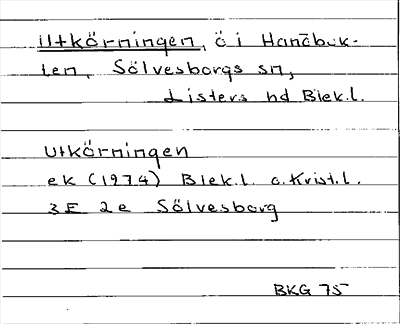 Utkörningen, ö i Hanöbuk-
ten, Sölvesborgs sn,
Listers hd Blek.l.
Utkörningen
ek (1974) Blek.l. o. Krist.l.
3E 2e Sölvesborg
BKG 75